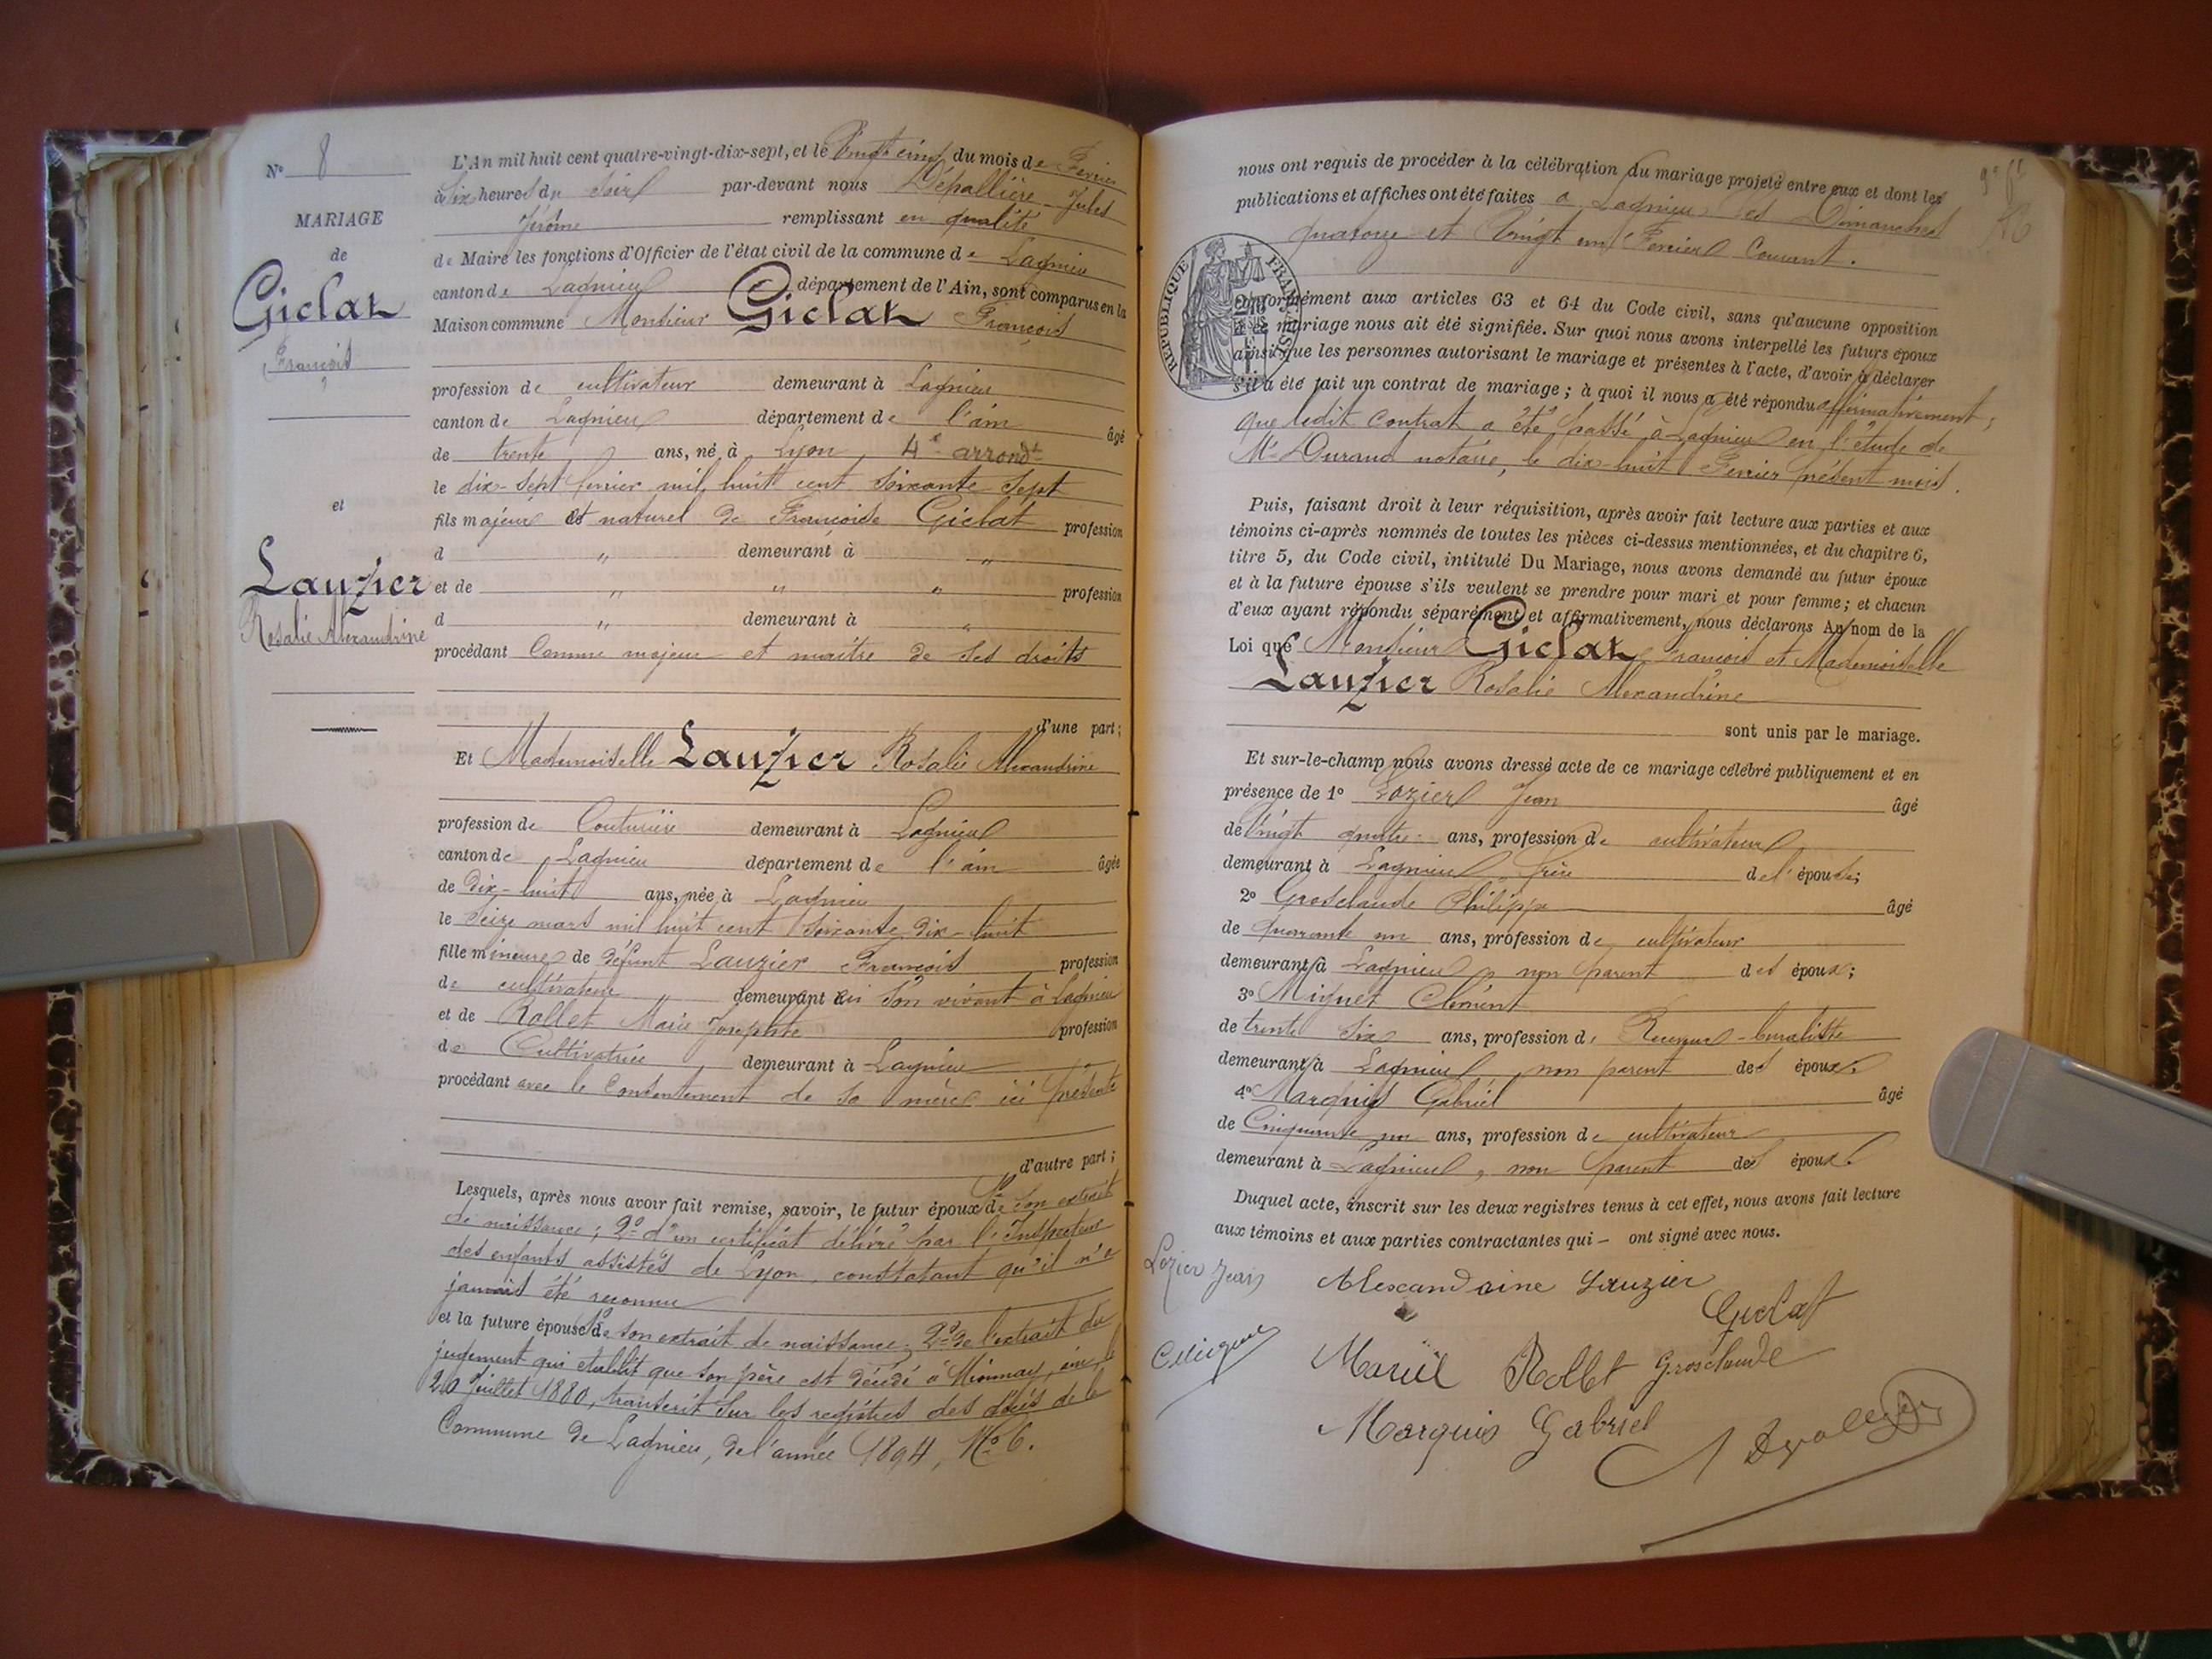 N° 8
MARIAGE
de
Giclat
François
et
Lauzier
Rosalie Alexandrine
L'An mil huit cent quatre-vingt-dix-sept, et le Vingt cinq du mois de Fevrier
à Six heures du Soir par-devant nous Dépallière Jules
Jérôme remplissant en qualité
de Maire les fonctions d'Officier de l'état civil de la commune de Lagnieu
canton de Lagnieu département de l'Ain, sont comparus en la
Maison commune Monsieur Giclat François
profession de cultivateur demeurant à Lagnieu
canton de Lagnieu département de l'ain âgé
de trente ans, né à Lyon 4e arrondt
le dix-sept fevrier mil huit cent soixante sept
fils majeur et naturel de Françoise Giclat profession
d " demeurant à "
et de " " " profession
d " demeurant à "
procédant Comme majeur et maitre de ses droits
d'une part;
Et Mademoiselle Lauzier Rosalie Alexandrine
profession de Couturière demeurant à Lagnieu
canton de Lagnieu département de l'ain âgée
de Dix-huit ans, née à Lagnieu
le Seize mars mil huit cent soixante dix-huit
fille mineure de défunt Lauzier François profession
de cultivateur demeurant en son vivant à Lagnieu
et de Rollet Marie Josephte profession
de Cultivatrice demeurant à Lagnieu
procédant avec le Consentement de sa mère ici présente
d'autre part;
Lesquels, après nous avoir fait remise, savoir, le futur époux 1° de Son extrait
de naissance; 2° d'un certificat délivré par l'Inspecteur
des enfants assistés de Lyon, constatant qu'il n'a
jamais été reconnu
et la future épouse 1° de son extrait de naissance; 2° de l'extrait du
jugement qui etablit que son père est décédé à Mionnay, ain, le
20 Juillet 1880, transcrit sur les registres des décès de la
Commune de Lagnieu, de l'année 1894, No 6.
nous ont requis de procéder à la célébration du mariage projeté entre eux et dont les
publications et affiches ont été faites a Lagnieu les Dimanches
quatorze et Vingt un Fevrier Courant.
REPUBLIQUE FRANÇAISE
Conformément aux articles 63 et 64 du Code civil, sans qu'aucune opposition
à ce mariage nous ait été signifiée. Sur quoi nous avons interpellé les futurs époux
ainsi que les personnes autorisant le mariage et présentes à l'acte, d'avoir à déclarer
s'il a été fait un contrat de mariage; à quoi il nous a été répondu affirmativement,
que ledit Contrat a été passé à Lagnieu en l'étude de
Me Durand notaire, le dix-huit Fevrier présent mois.
Puis, faisant droit à leur réquisition, après avoir fait lecture aux parties et aux
témoins ci-après nommés de toutes les pièces ci-dessus mentionnées, et du chapitre 6,
titre 5, du Code civil, intitulé Du Mariage, nous avons demandé au futur époux
et à la future épouse s'ils veulent se prendre pour mari et pour femme; et chacun
d'eux ayant répondu séparément et affirmativement, nous déclarons Au nom de la
Loi que Monsieur Giclat François et Mademoiselle
Lauzier Rosalie Alexandrine
sont unis par le mariage.
Et sur-le-champ nous avons dressé acte de ce mariage célébré publiquement et en
présence de 1° Lozier Jean âgé
de Vingt quatre ans, profession de cultivateur
demeurant à Lagnieu frère de l'épouse;
2° Grosclaude Philippe âgé
de quarante un ans, profession de cultivateur
demeurant à Lagnieu non parent des époux;
3° Miguet Clément
de trente Six ans, profession de Receveur-buraliste
demeurant à Lagnieu non parent des époux
4° Marquis Gabriel âgé
de Cinquante un ans, profession de cultivateur
demeurant à Lagnieu, non parent des époux
Duquel acte, inscrit sur les deux registres tenus à cet effet, nous avons fait lecture
aux témoins et aux parties contractantes qui – ont signé avec nous.
Lozier Jean Alexandrine Lauzier
Giclat
Marie Rollet Grosclaude
Marquis Gabriel